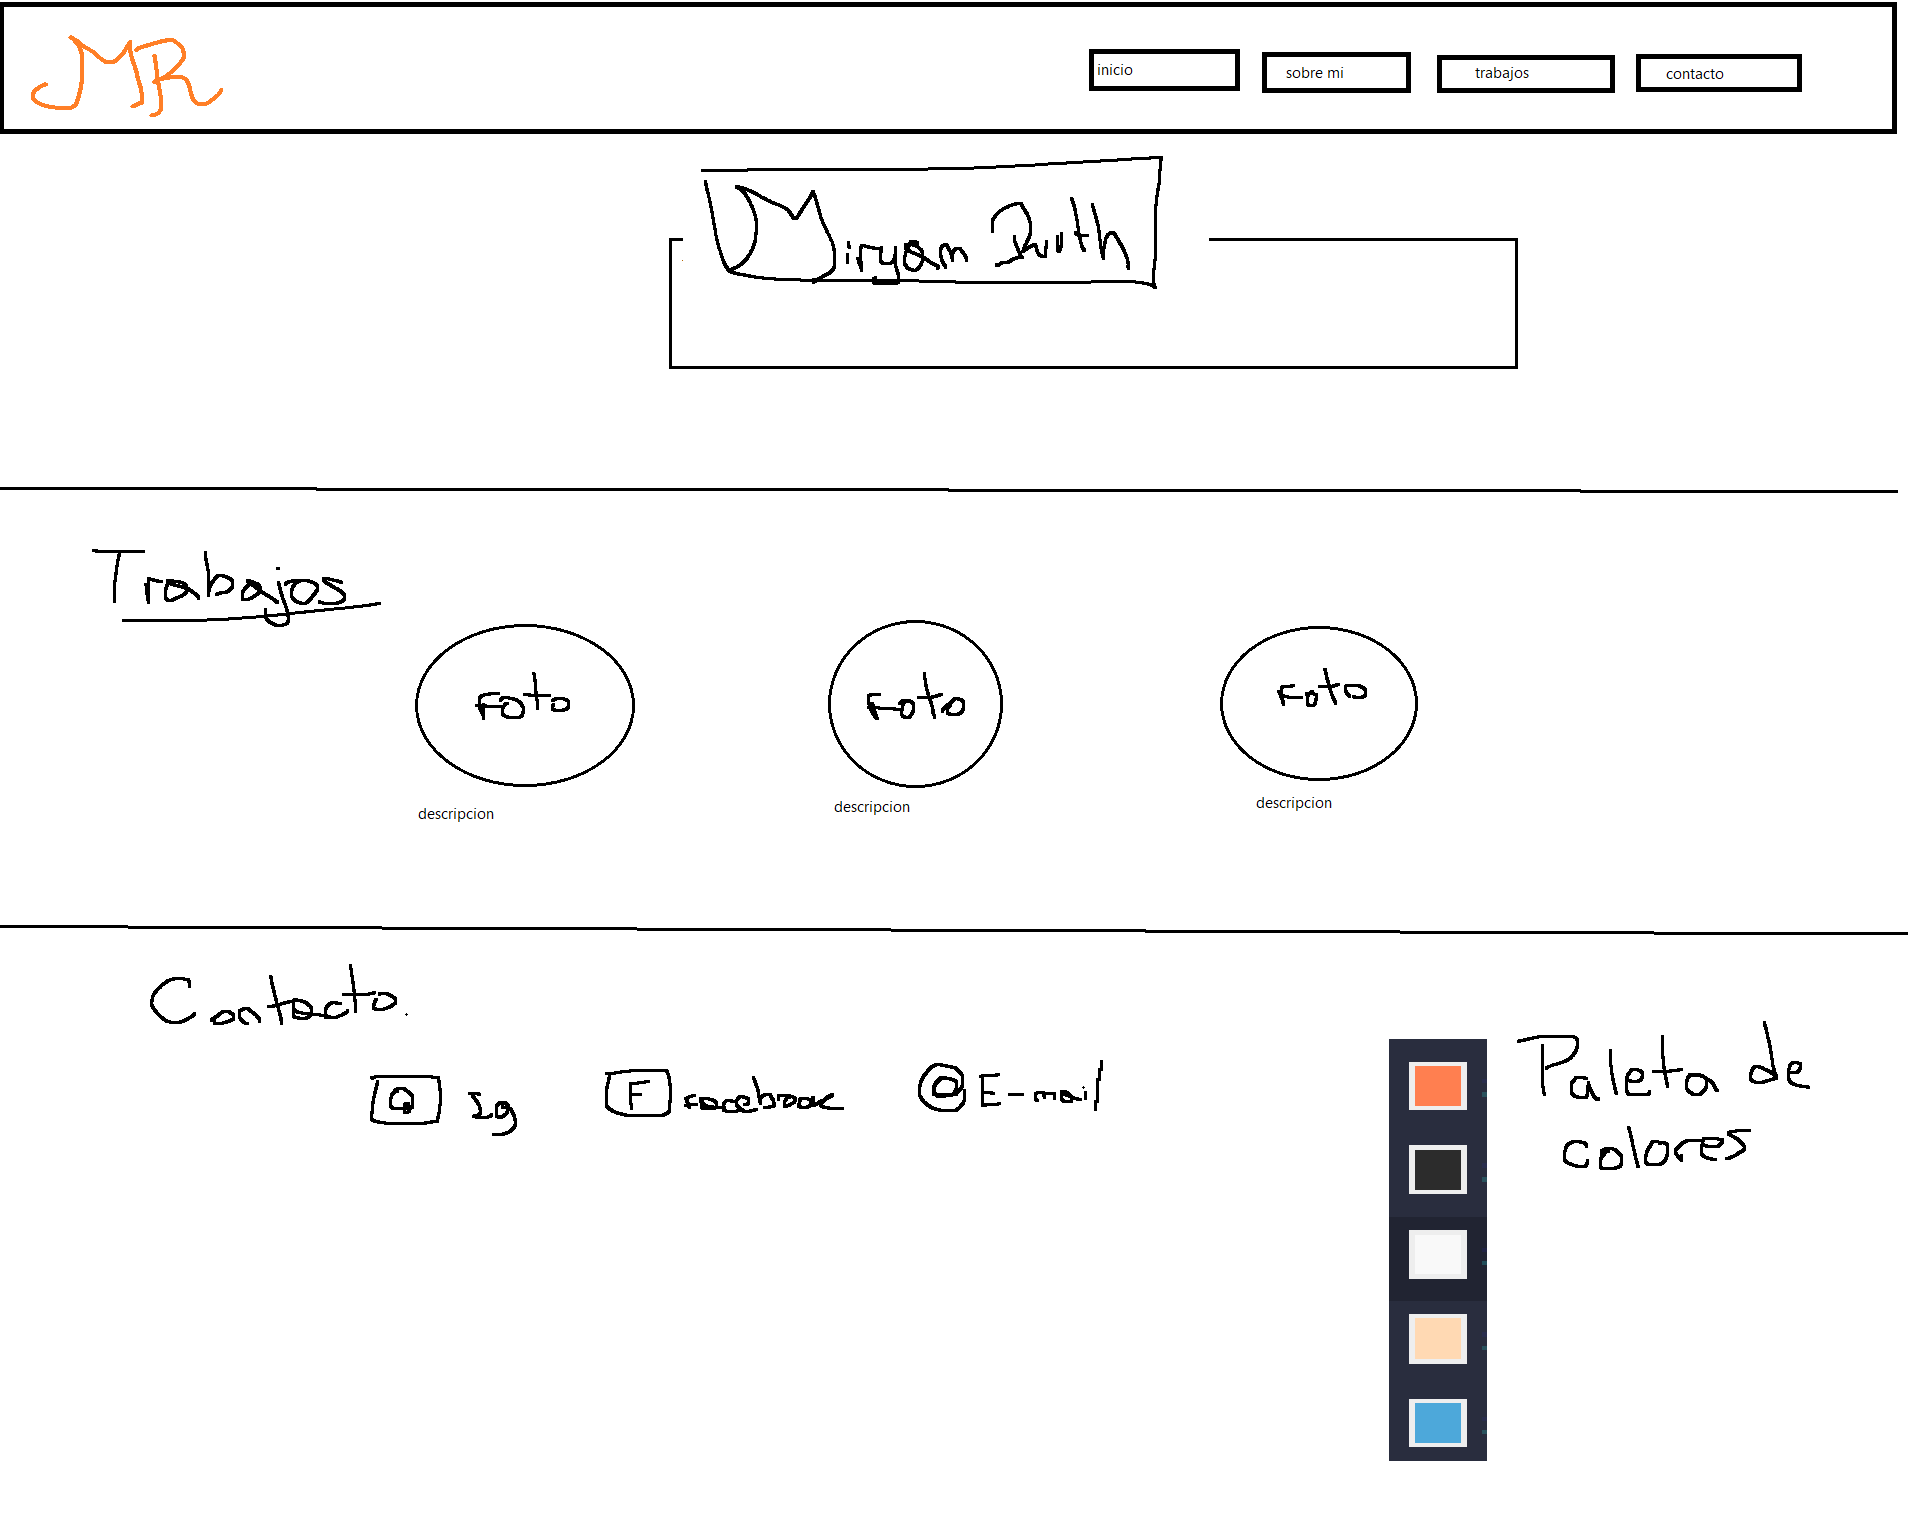 MR
inicio
sobre mi
trabajos
contacto
Miryam Ruth
Trabajos
Foto
Foto
Foto
descripcion
descripcion
descripcion
Contacto.
Ig
F facebook
E-mail
Paleta de
colores